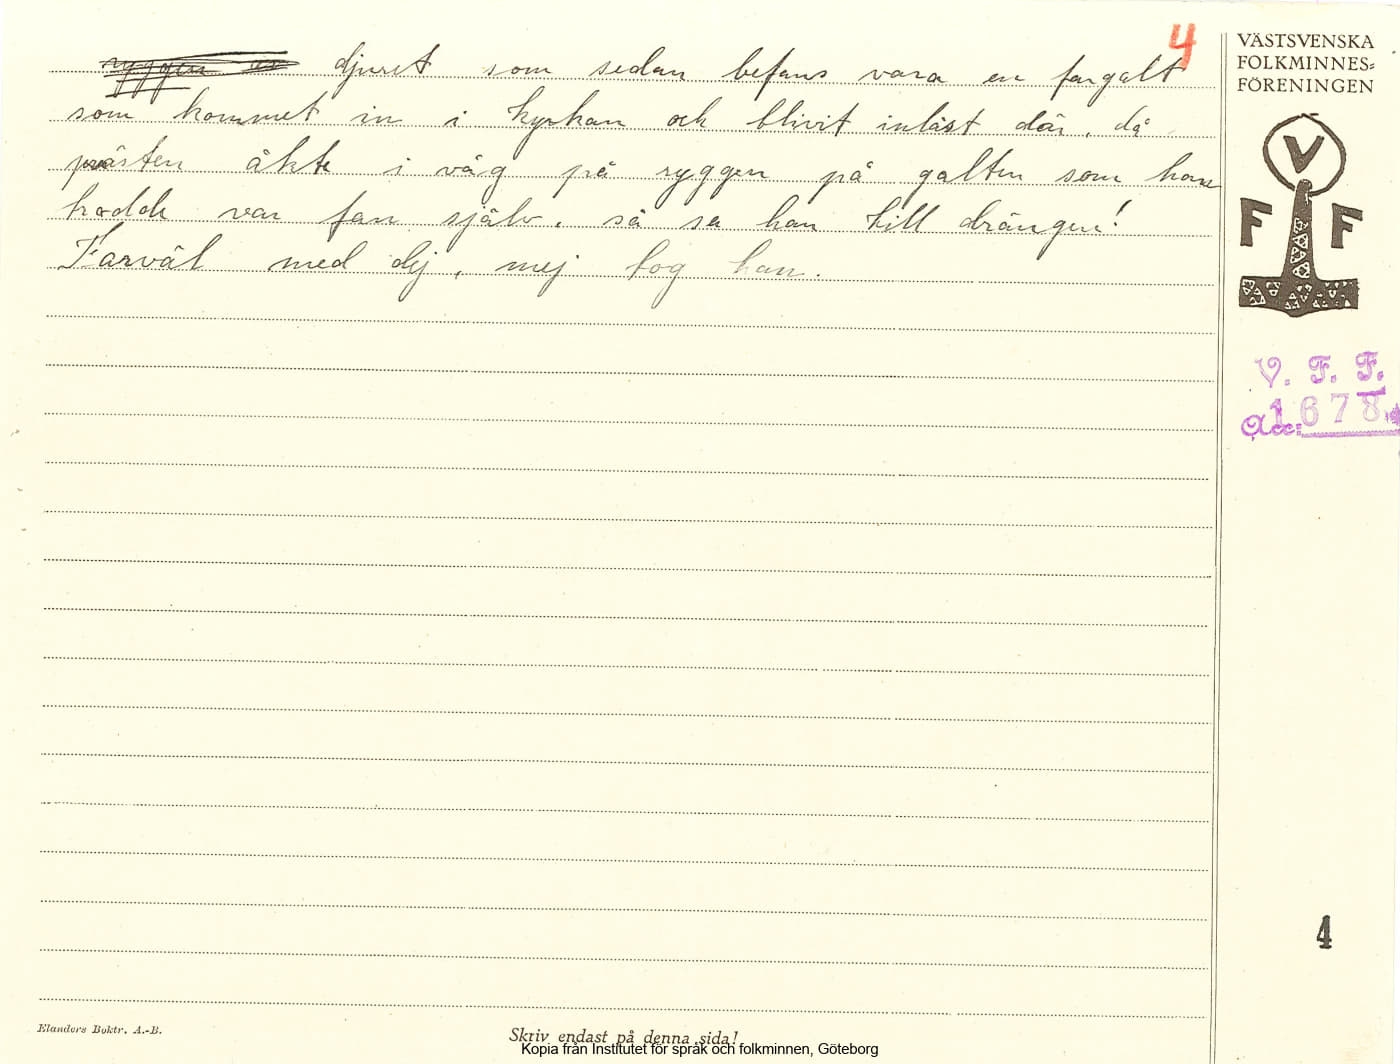 4
djuret som sedan befans vara en fargalt
som kommet in i kyrkan och blivit inlåst där, då
prästen åkte i väg på ryggen på galten som han
trodde var fan själv, så sa han till drängen!
Farväl med dej, mej tog han.
VÄSTSVENSKA
FOLKMINNES=
FÖRENINGEN
V
F F
V. F. F.
Acc: 1678
4
Elanders Boktr. A.-B.
Skriv endast på denna sida!
Kopia från Institutet för språk och folkminnen, Göteborg